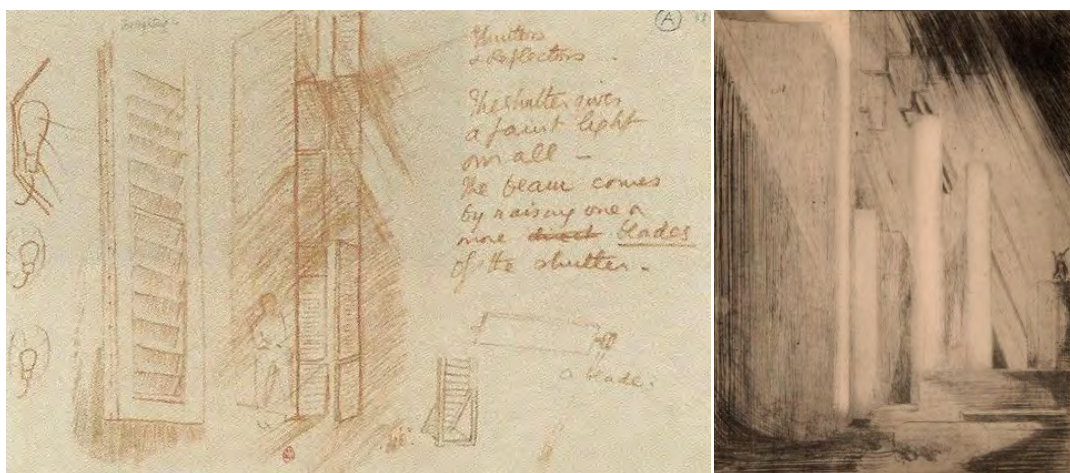 (A)
Shutters
& Reflectors.
The shutter gives
a faint light
on all –
The beam comes
by raising one or
more direct blades
of the shutter –
a blade.